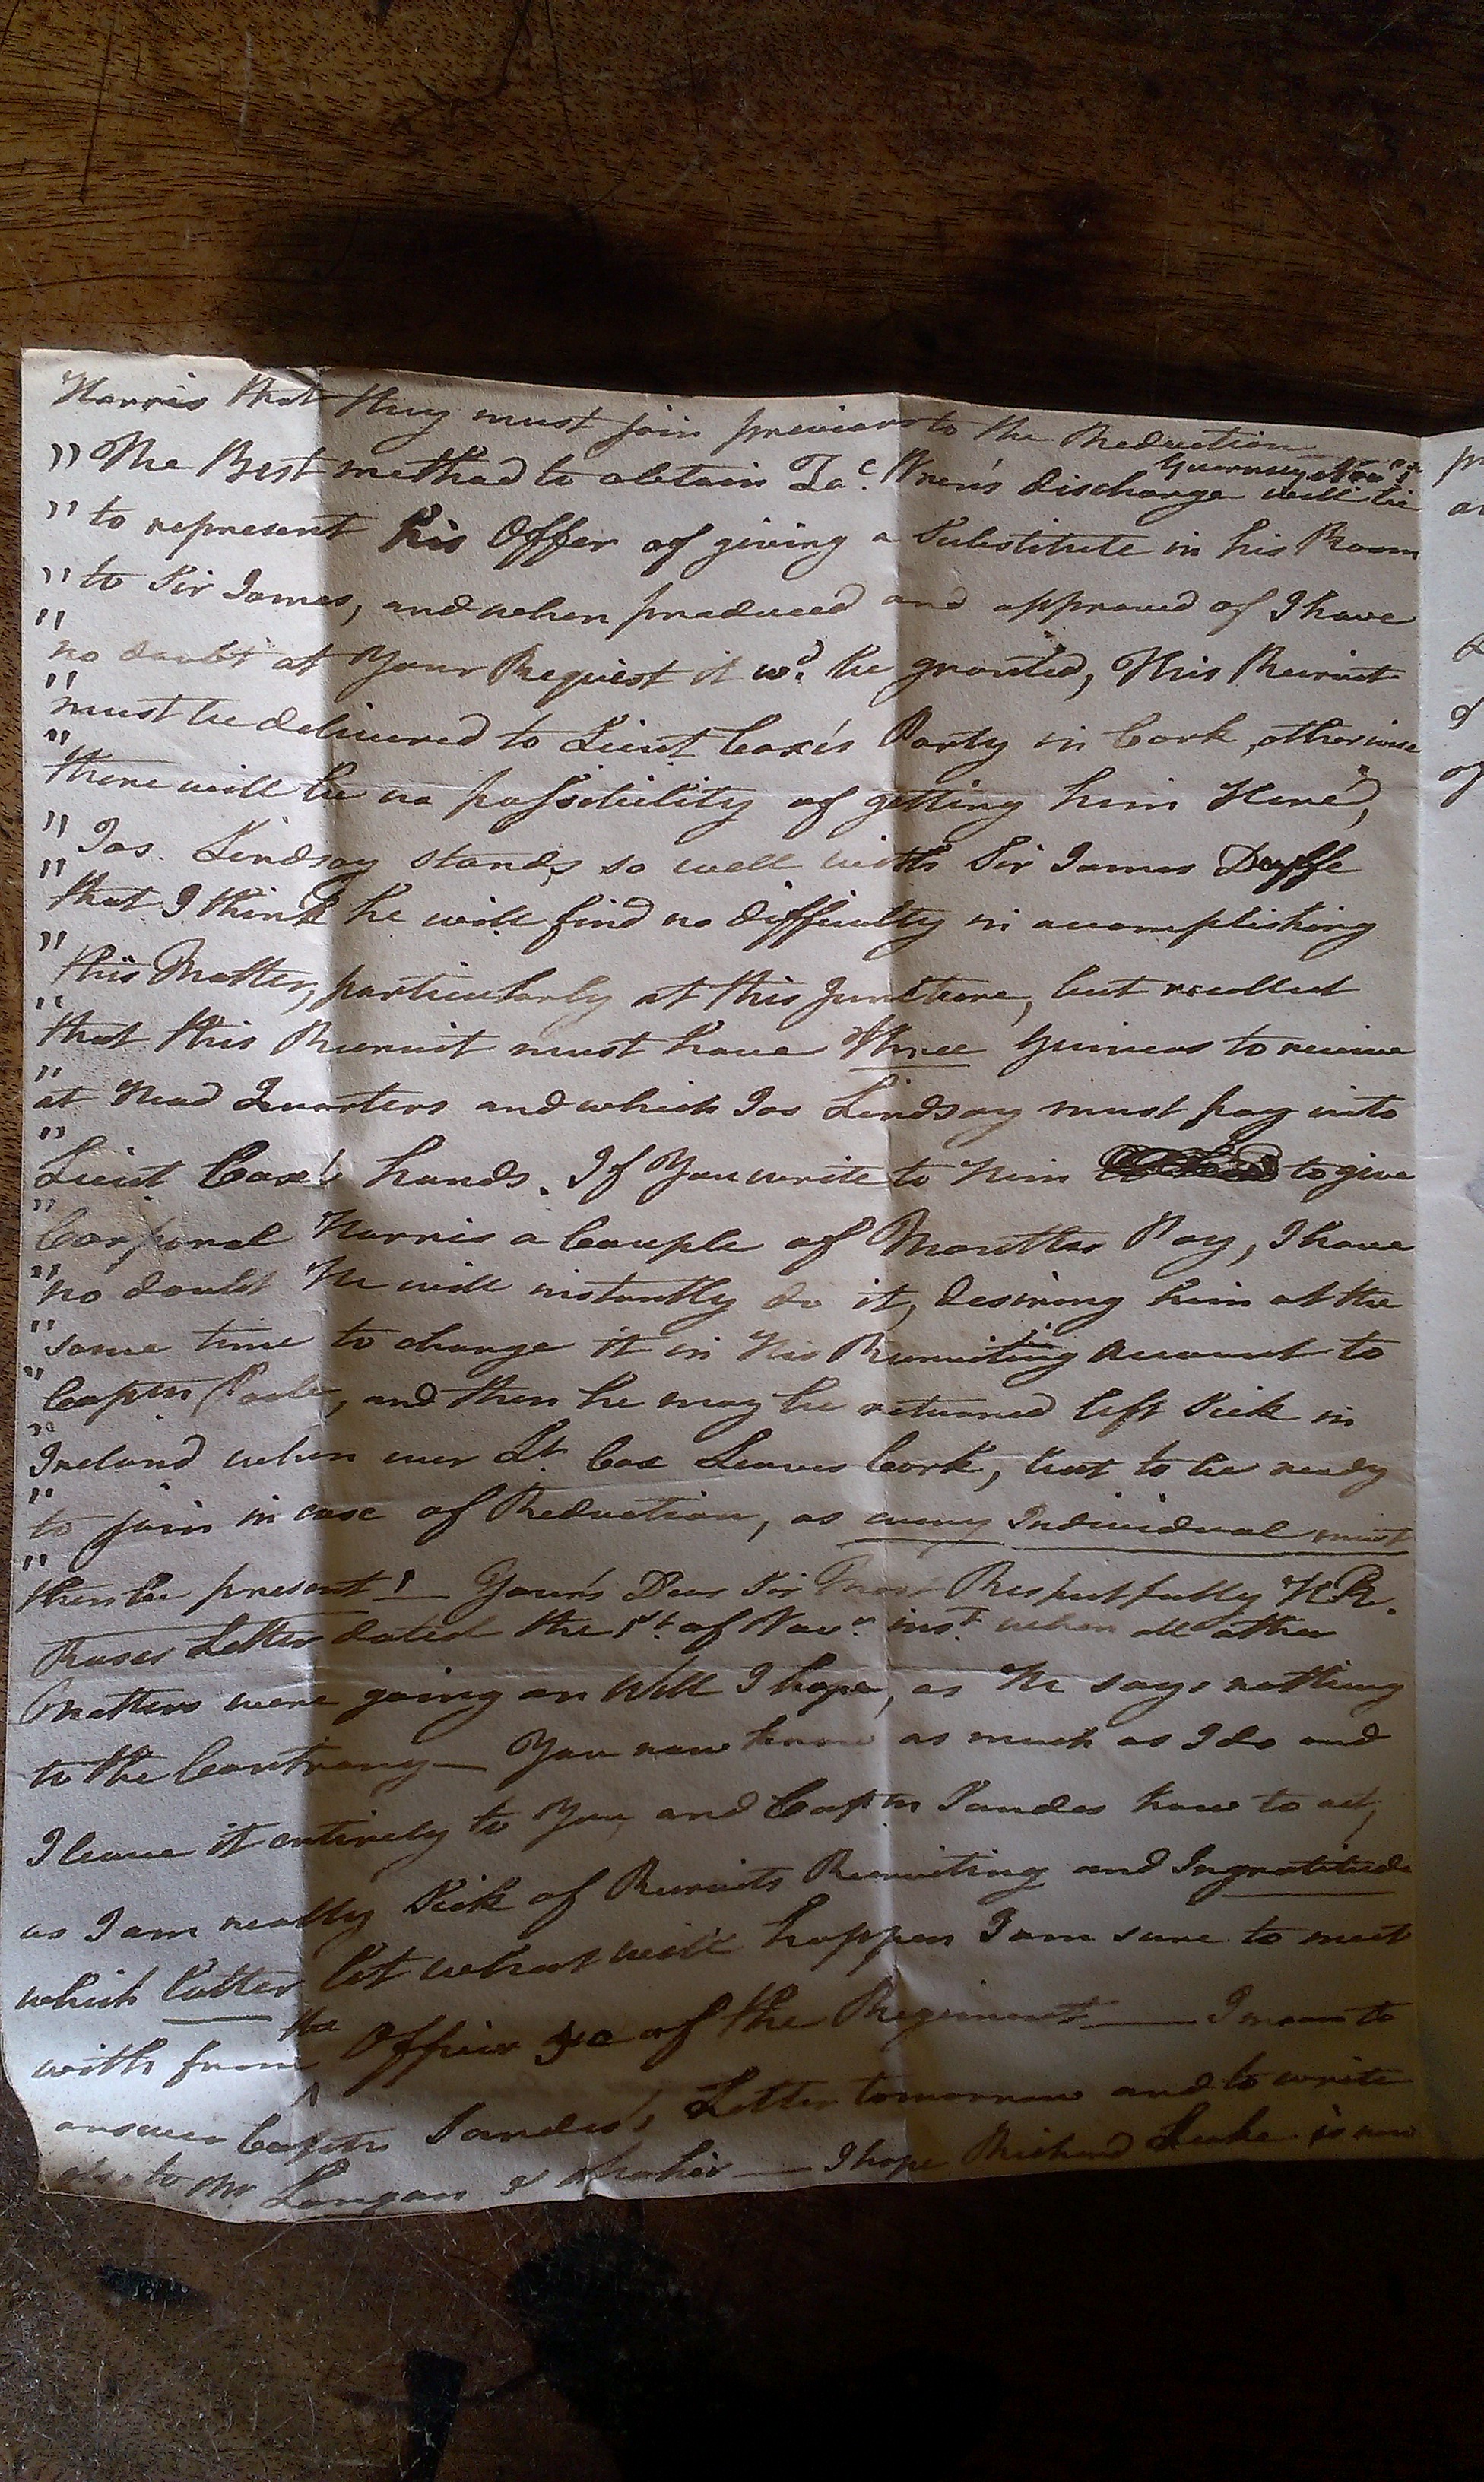 Harris that they must join previous to the Reduction
Guernsey Nov.
" The Best method to obtain Wren's discharge will be
" to represent his Offer of giving a Substitute in his Room
" to Sir James, and when produced and approved of I have
" no doubt at Your Request it wd. be granted, This Recruit
" must be delivered to Lieut Cox's Party in Cork, otherwise
" there will be no possibility of getting him Here,
" Jas. Lindsay stands so well with Sir James Duffe
" that I think he will find no difficulty in accomplishing
" this Matter, particularly at this Juncture, but recollect
" that this Recruit must have Three Guineas to receive
" at Head Quarters and which Jas Lindsay must pay into
" Lieut Cox's hands. If You write to Him to give
" Corporal Harris a Couple of Months Pay, I have
" no doubt He will instantly do it, desiring him at the
" same time to charge it in His Recruiting Account to
" Captn Poole, and then he may be returned left Sick in
" Ireland when ever Lt. Cox Leaves Cork, but to be ready
" to join in case of Reduction, as every Individual must
" then be present! — Your's Dear Sir Most Respectfully H.R.
Letter dated the 1st. of Novr. inst. when all other
Matters were going on Well I hope, as He says nothing
to the Contrary — You now know as much as I do and
I leave it entirely to You and Captn Sandes how to act,
as I am really Sick of Recruits Recruiting and Ingratitude
which latter let what will happen I am sure to meet
with from the Officer &c of the Regiment — I mean to
answer Captn Sandes's Letter tomorrow and to write
also to Mr. Langan — I hope Richard Leake is now